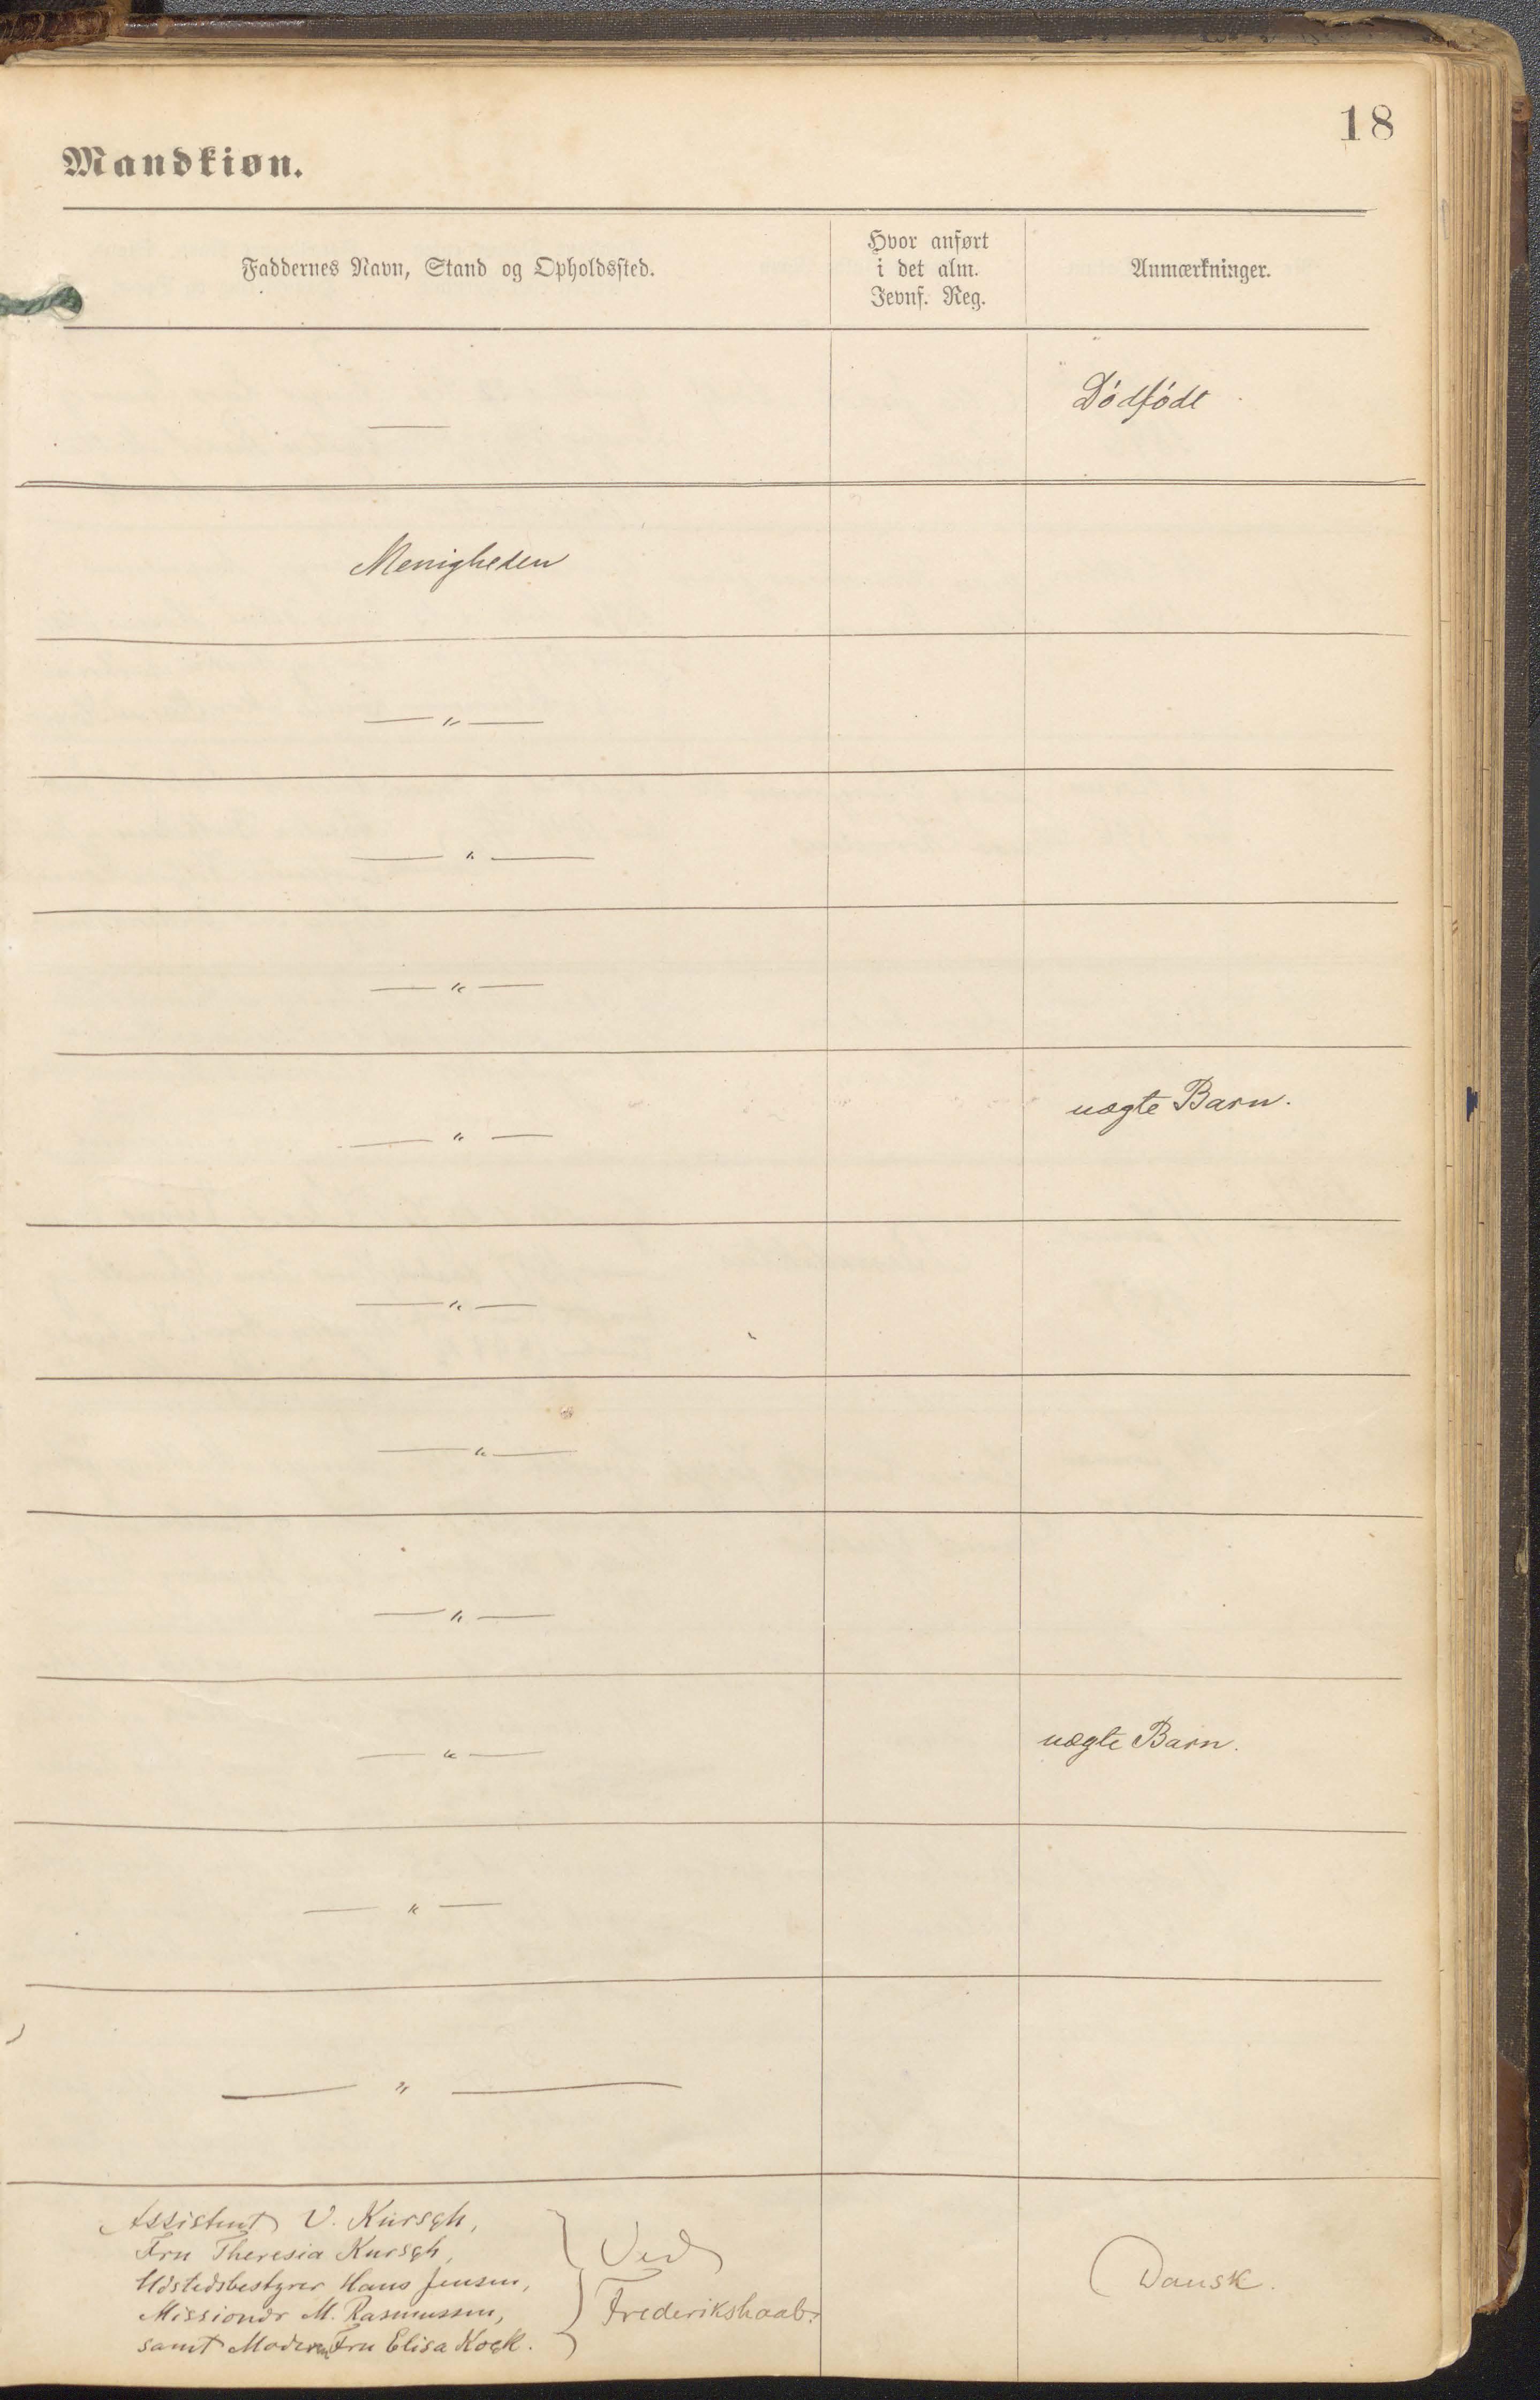 18
Mandkiøn.
Faddernes Navn, Stand og Opholdssted.
Hvor anført
i det alm.
Jevnf. Reg.
Anmærkninger.
—
Dödfödt
Menigheden
— " —
— " —
— " —
— " —
uægte Barn.
— " —
— " —
— " —
— " —
uægte Barn.
— " —
— " —
Assistent V. Kursch,
Fru Theresia Kursch,
Udstedsbestyrer Hans Jensen,
Missionær M. Rasmussen,
samt Moderen Fru Elisa Kock.
Ved
Frederikshaab.
Dansk.